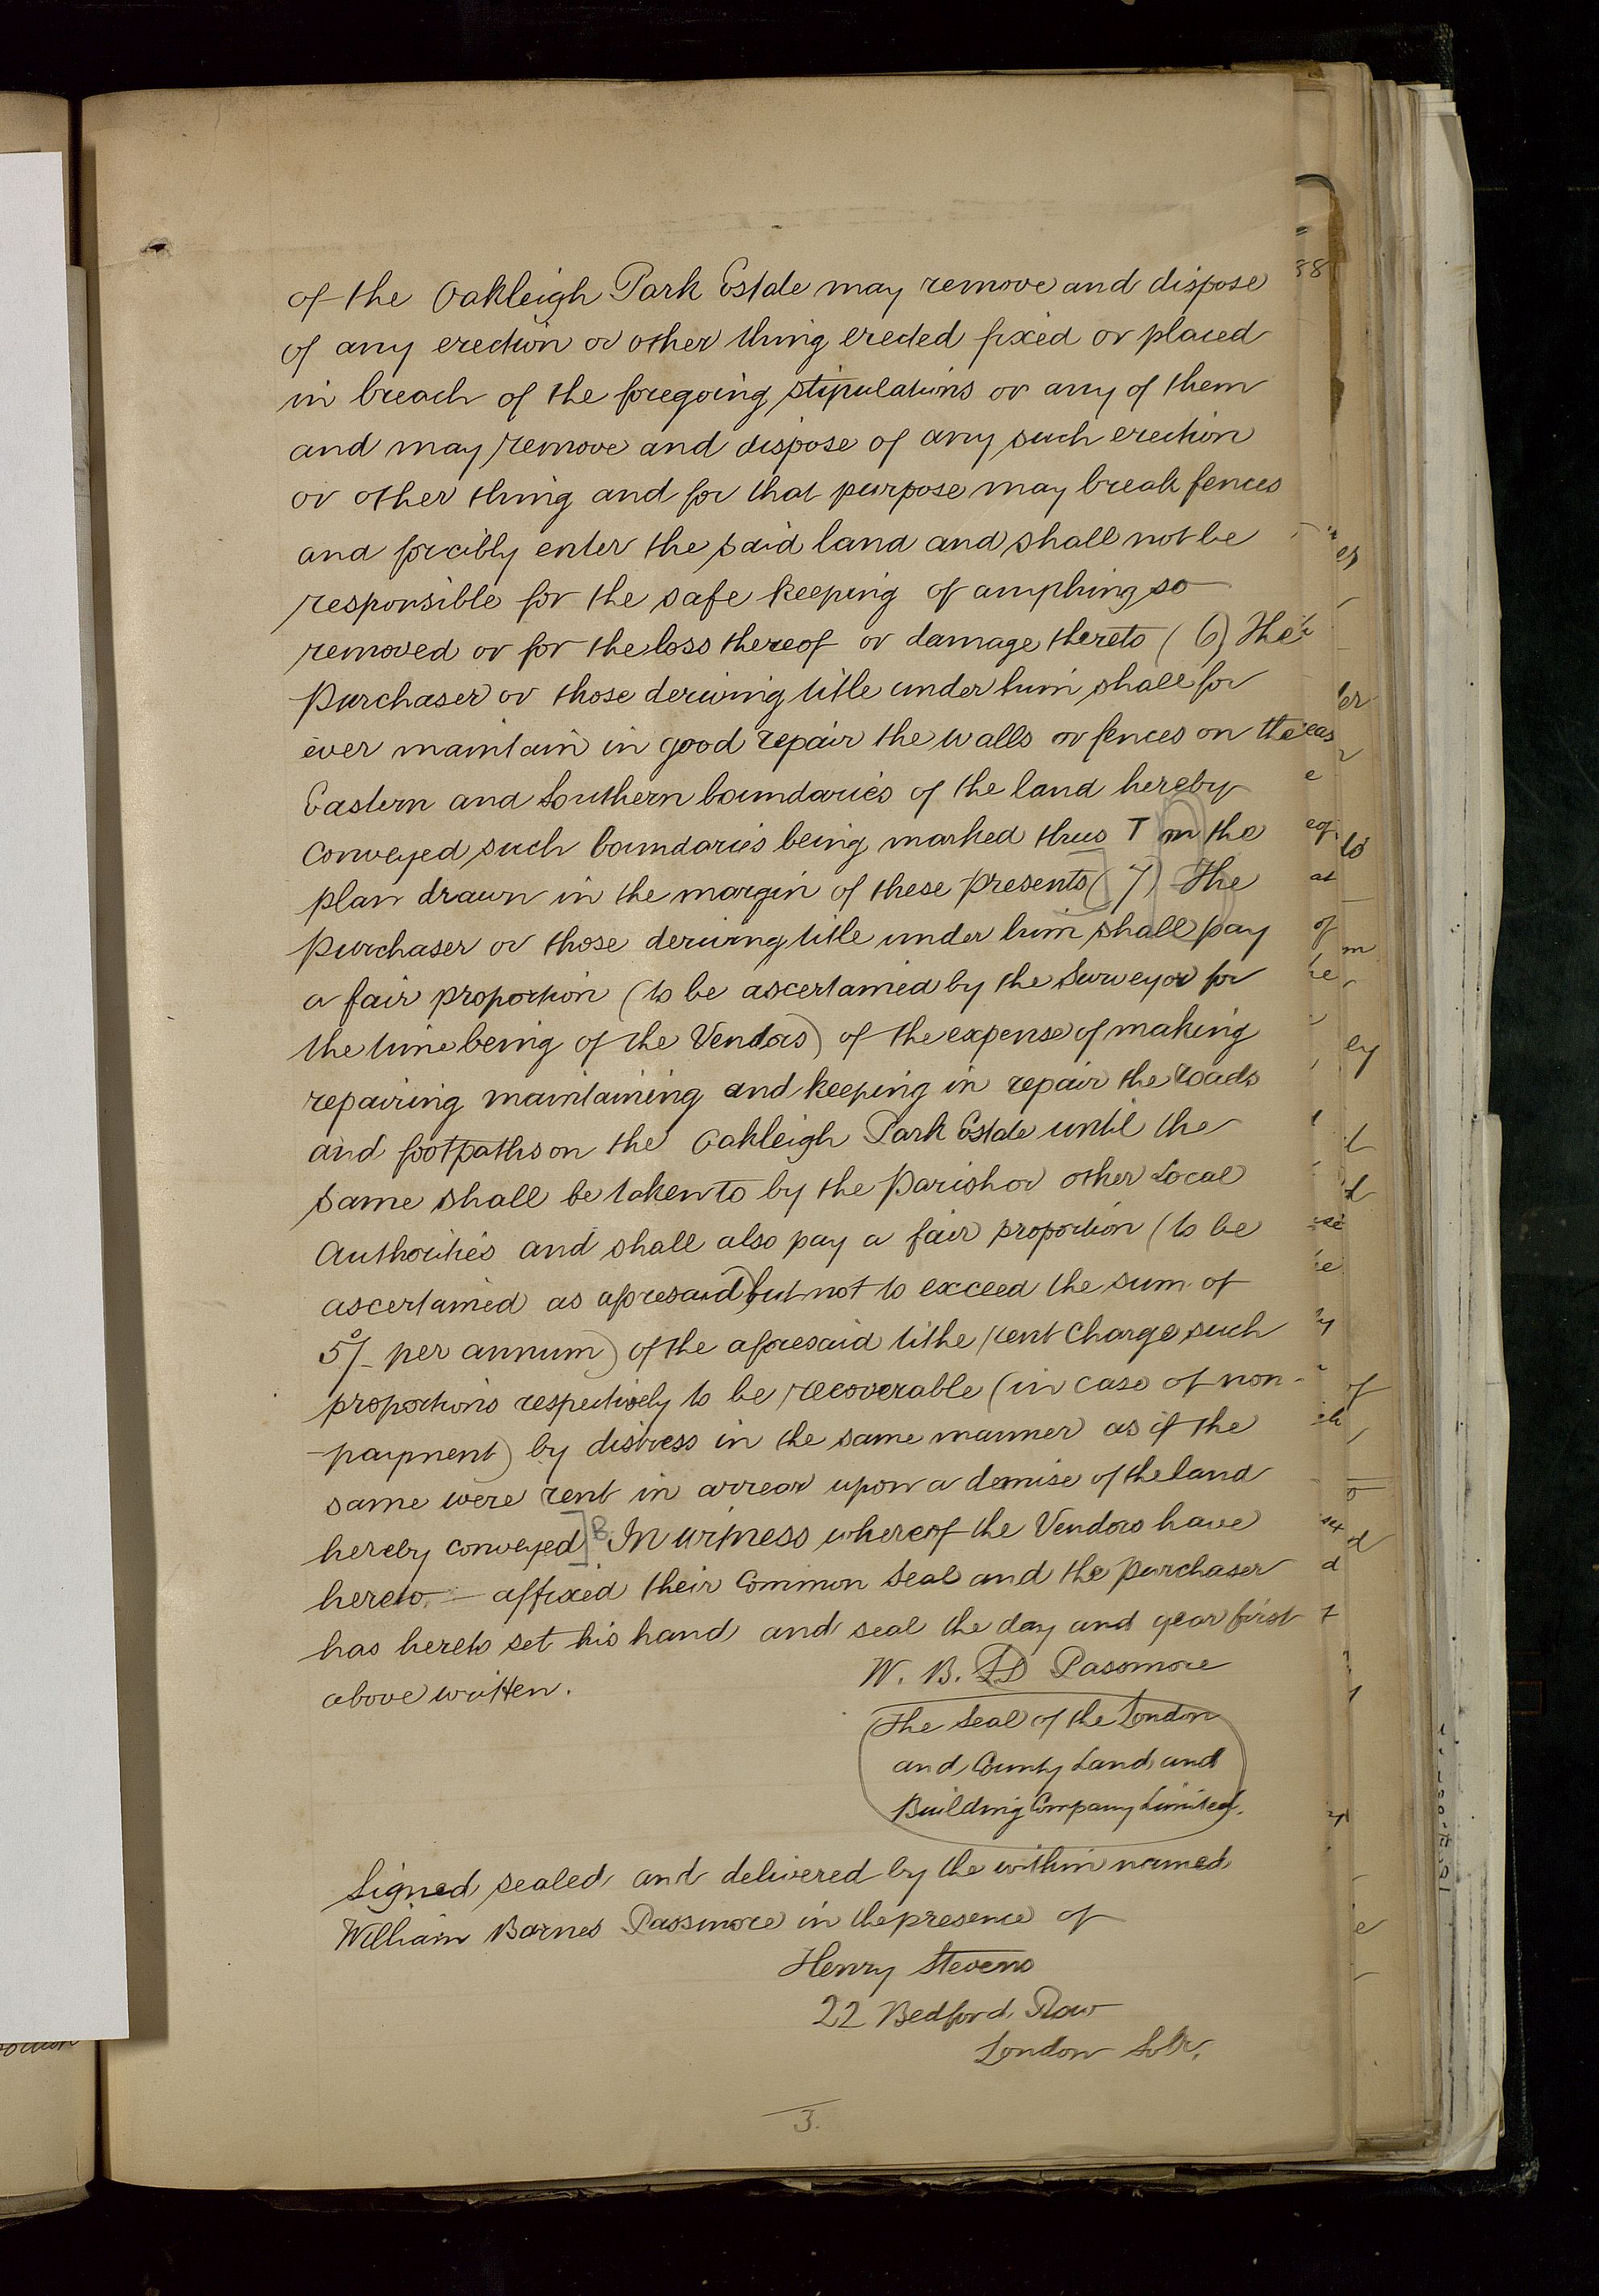 of the Oakleigh Park Estate may remove and dispose
of any erection or other thing erected fixed or placed
in breach of the foregoing stipulations or any of them
and may remove and dispose of any such erection
or other thing and for that purpose may break fences
and forcibly enter the said land and shall not be
responsible for the safe keeping of anything so
removed or for the loss thereof or damage thereto (6) The
purchaser or those deriving title under him shall for
ever maintain in good repair the walls or fences on the
Eastern and Southern boundaries of the land hereby
conveyed such boundaries being marked thus T on the
plan drawn in the margin of these presents (7) The
purchaser or those deriving title under him shall pay
a fair proportion (to be ascertained by the Surveyor for
the time being of the Vendors) of the expense of making
repairing maintaining and keeping in repair the roads
and footpaths on the Oakleigh Park Estate until the
same shall be taken to by the Parish or other Local
Authorities and shall also pay a fair proportion (to be
ascertained as aforesaid but not to exceed the sum of
5/- per annum) of the aforesaid tithe rent charge such
proportions respectively to be recoverable (in case of non-
-payment) by distress in the same manner as if the
same were rent in arrear upon a demise of the land
hereby conveyed] B. In witness whereof the Vendors have
hereto - affixed their Common Seal and the purchaser
has hereto set his hand and seal the day and year first
above written.
W. B. LS Passmore
The Seal of the London
and County Land and
Building Company Limited.
Signed sealed and delivered by the within named
William Barnes Passmore in the presence of
Henry Stevens
22 Bedford Row
London Solr.
3.